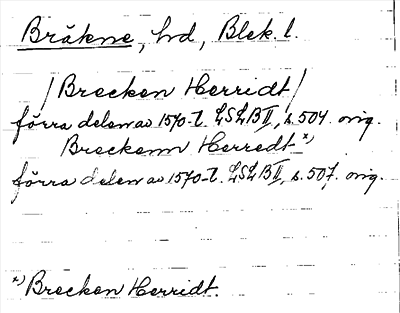 Bräkne, hd, Blek. l.
/Brecken Herridt/
förra delen av 1570-t. LSLB II, s. 504. orig.
Breckenn Herredt x)
förra delen av 1570-t. LSLB II, s. 507. orig.
x) Brecken Herridt.